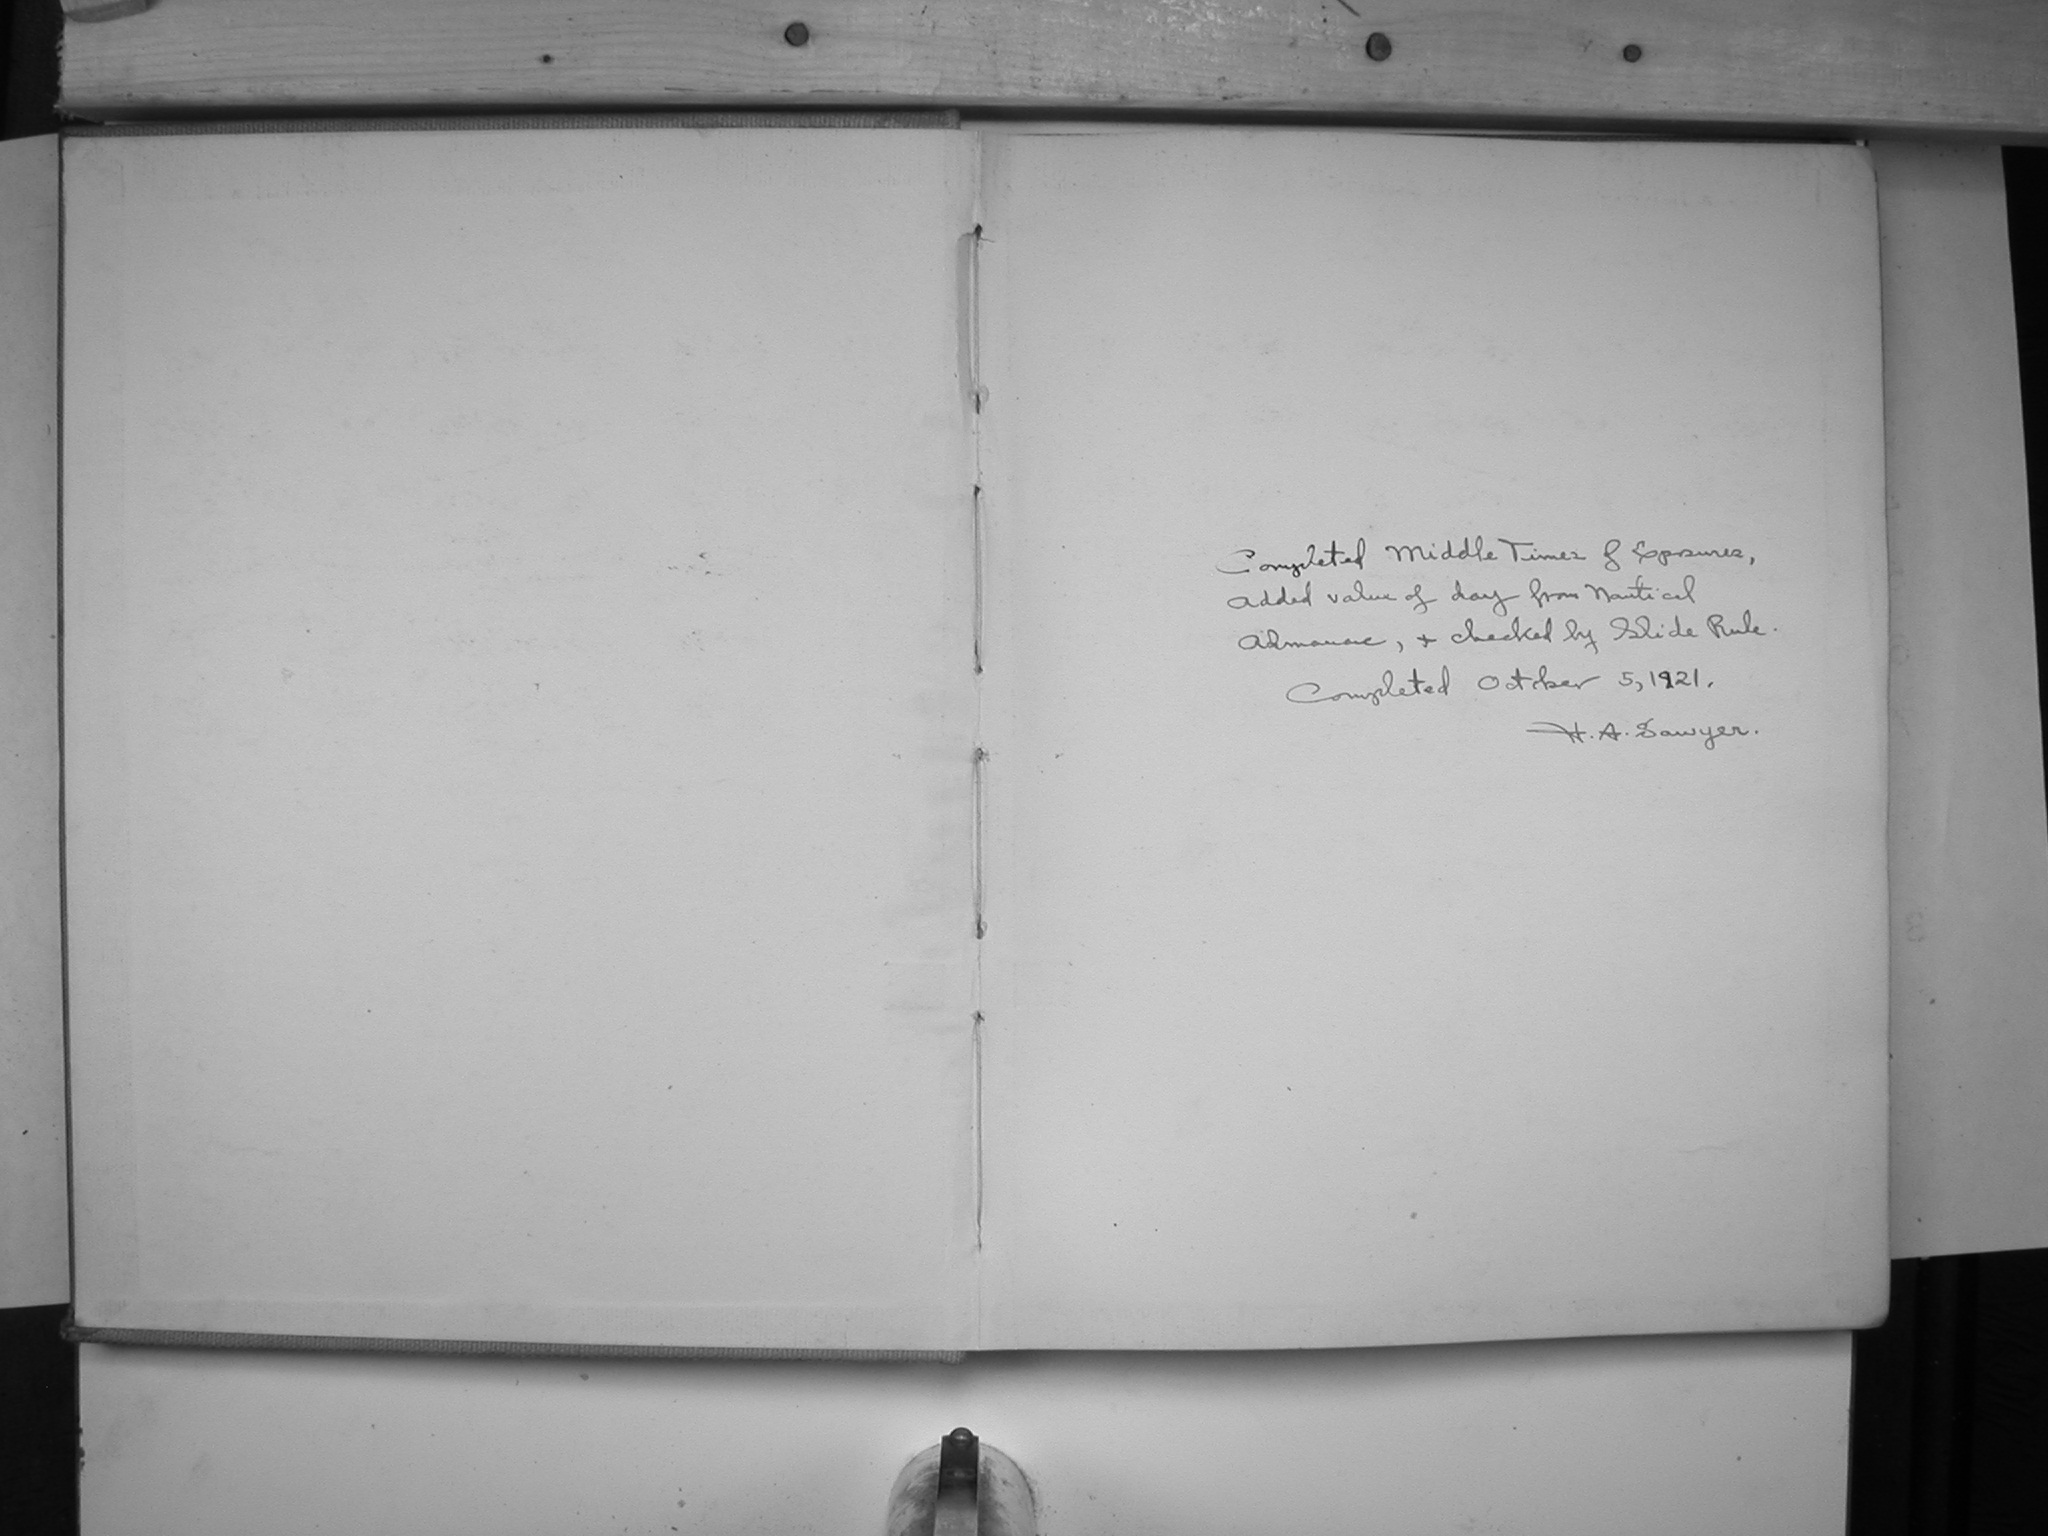 Completed Middle Times of Exposures,
added value of day from Nautical
Almanac, + checked by Slide Rule.
Completed October 5, 1921.
H. A. Sawyer.